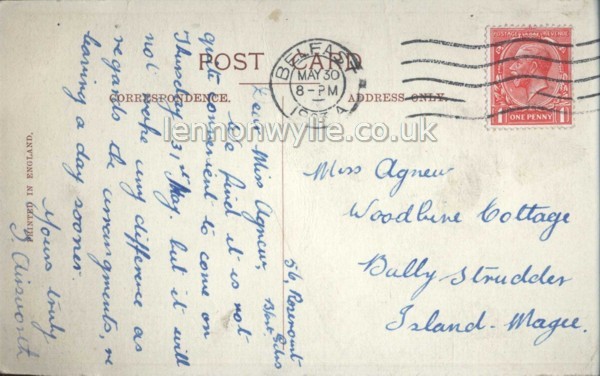 POST CARD
CORRESPONDENCE.
ADDRESS ONLY.
PRINTED IN ENGLAND.
BELFAST
MAY 30
8 - PM
POSTAGE REVENUE
ONE PENNY
lennonwylie.co.uk
56, Rosemount
Gdns
Dear Miss Agnew,
We find it is not
quite convenient to come on
Thursday 31st May, but it will
not make any difference as
regards the arrangments, re
leaving a day sooner.
Yours truly
Ainsworth
Miss Agnew
Woodbine Cottage
Bally Strudder
Island-Magee.